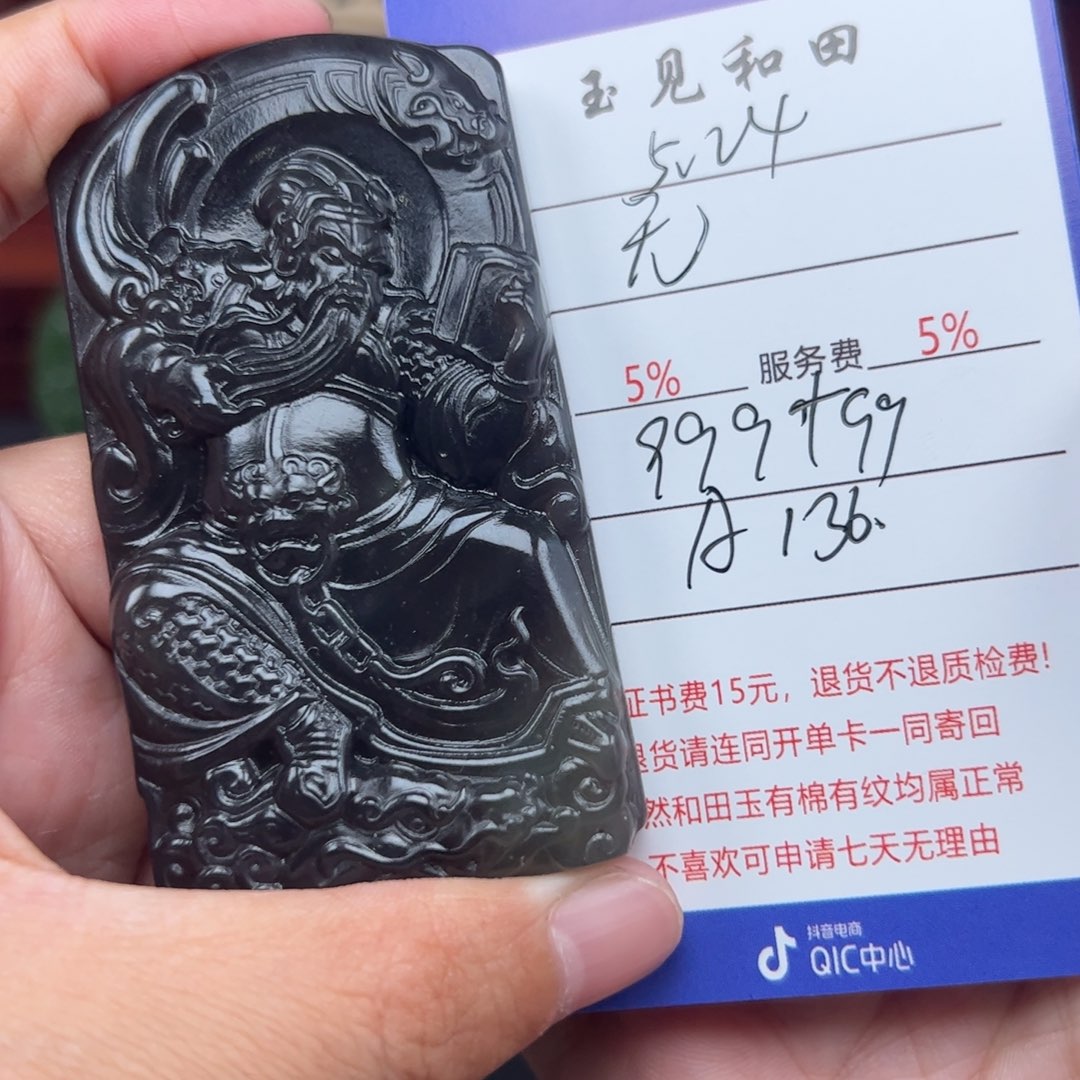 玉见和田
5.24
无
5% 服务费 5%
899+99
A 136.
证书费15元，退货不退质检费！
退货请连同开单卡一同寄回
然和田玉有棉有纹均属正常
不喜欢可申请七天无理由
抖音电商
QIC中心